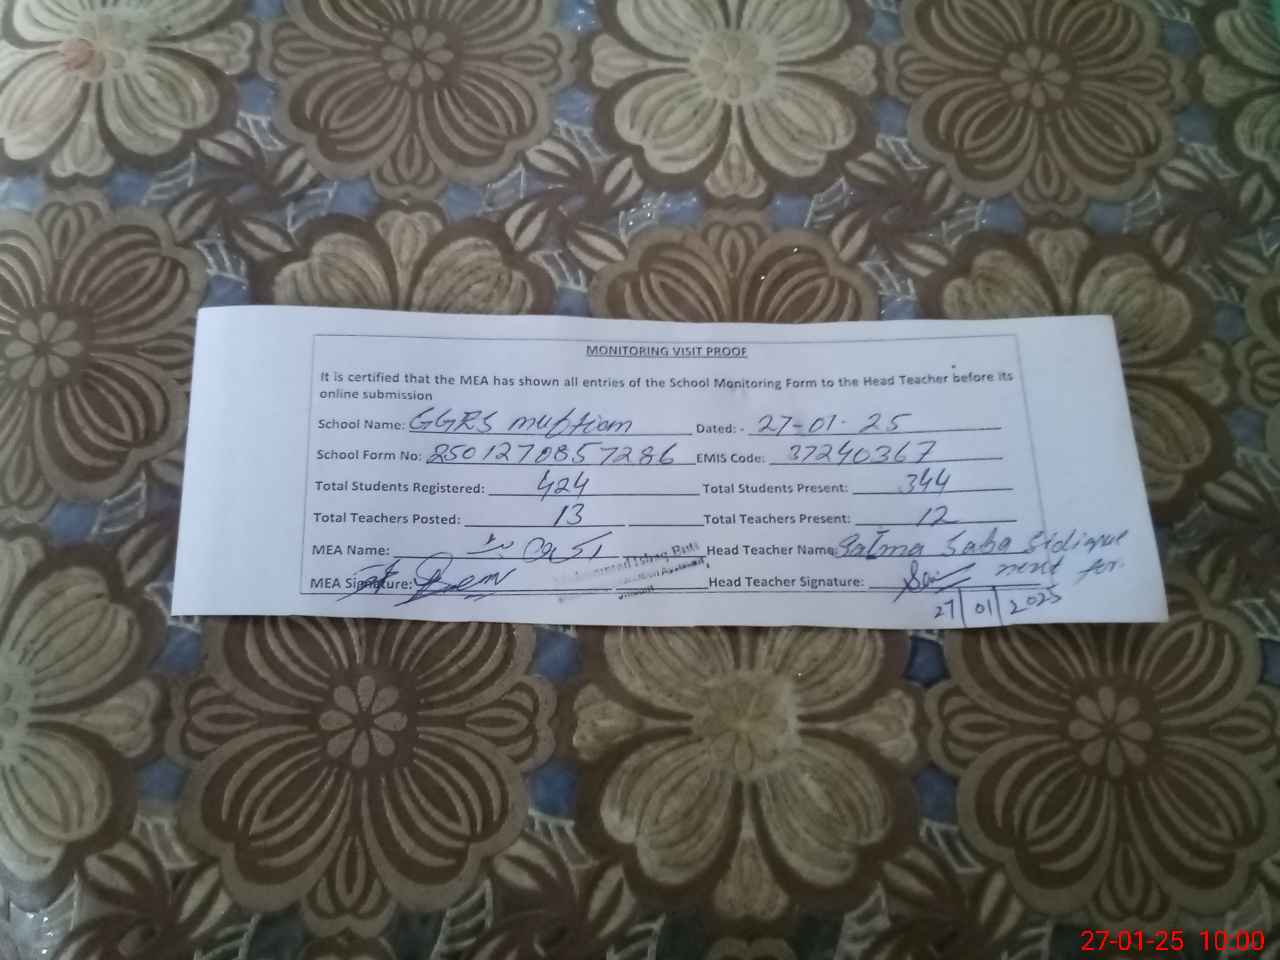 MONITORING VISIT PROOF
It is certified that the MEA has shown all entries of the School Monitoring Form to the Head Teacher before its
online submission
School Name: GGRS Dated: - 27-01-25
School Form No: 2501270857286 EMIS Code: 37240367
Total Students Registered: 424 Total Students Present: 344
Total Teachers Posted: 13 Total Teachers Present: 12
MEA Name: Head Teacher Name: Saba
MEA Signature: Head Teacher Signature:
27 | 01 | 2025
27-01-25 10:00